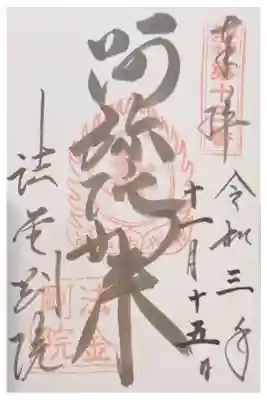 奉拝
令和三年
十一月十五日
阿弥陀如来
法金剛院
法金
剛院